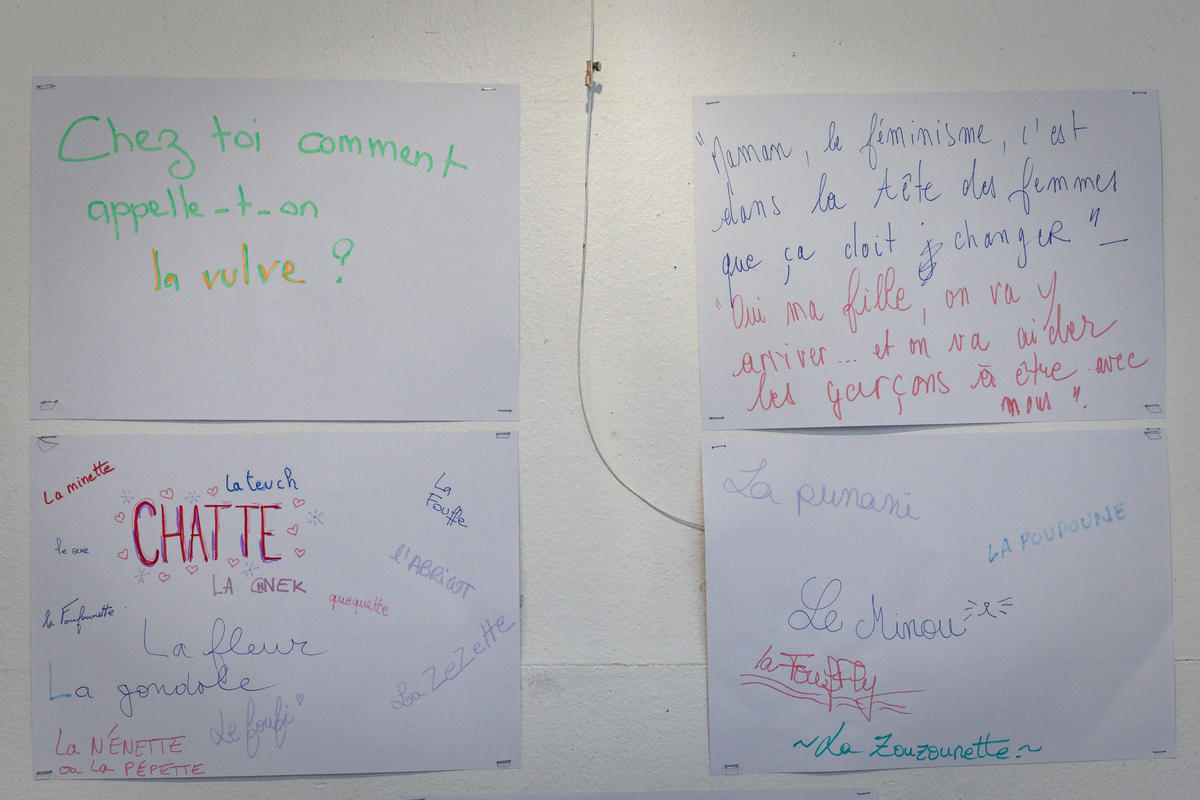 Chez toi comment
appelle-t-on
la vulve ?
"Maman, le féminisme, c'est
dans la tête des femmes
que ça doit changer" _
"Oui ma fille, on va y
arriver... et on va aider
les garçons à être avec
nous".
La minette
La teuch
La
Fouffe
CHATTE
le sexe
l'ABRICOT
LA CHNEK
quequette
la Foufounette
La fleur
La ZeZeTTe
La gondole
Le foufi
La NÉNETTE
ou La PÉPETTE
La punani
LA POUDOUNE
Le Minou
la FoufFly
~La Zouzounette.~